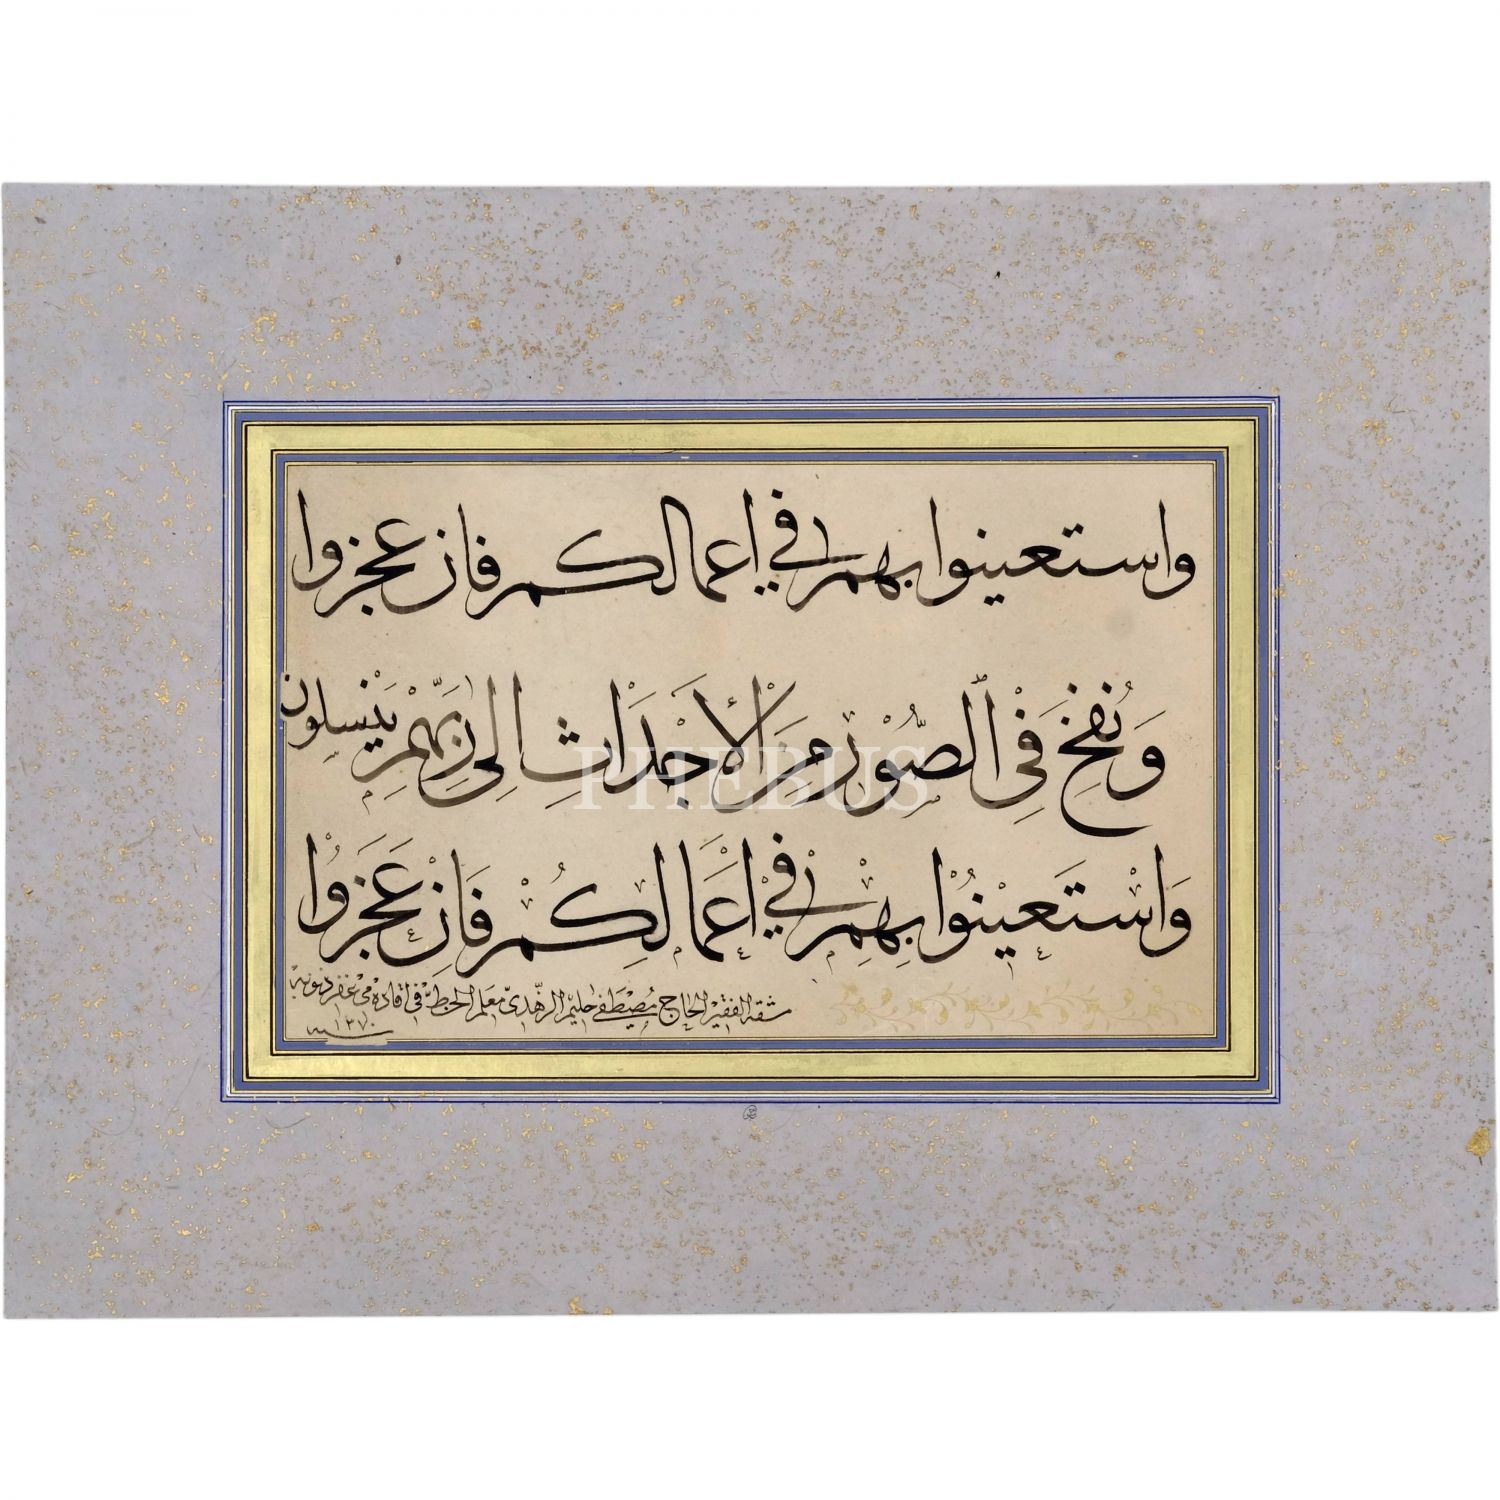 واستعينوا بهم في اعمالكم فان عجزوا
وَنُفِخَ فِي ٱلصُّوْرِ مِنَ الْأَجْدَاثِ اِلٰى رَبِّهِمْ يَنْسِلُونَ
PHEBUS
وَاسْتَعِيْنُوْا بِهِمْ فِيْ اَعْمَالِكُمْ فَاِنْ عَجَزُوْا
مشقه الفقير الحاج مصطفى حليم الزهدى معلم الخط فى غفر ذنوبه
سنه ١٣٧٠